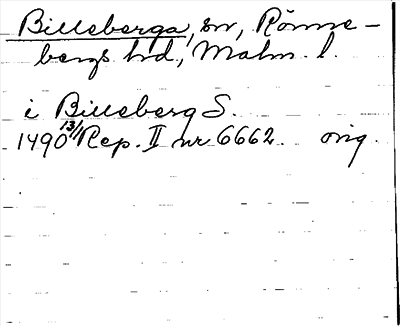 Billeberga, sn, Rönne-
bergs hd, Malm. l.
i Billeberg S.
1490 13/1 Rep. II nr 6662 orig.